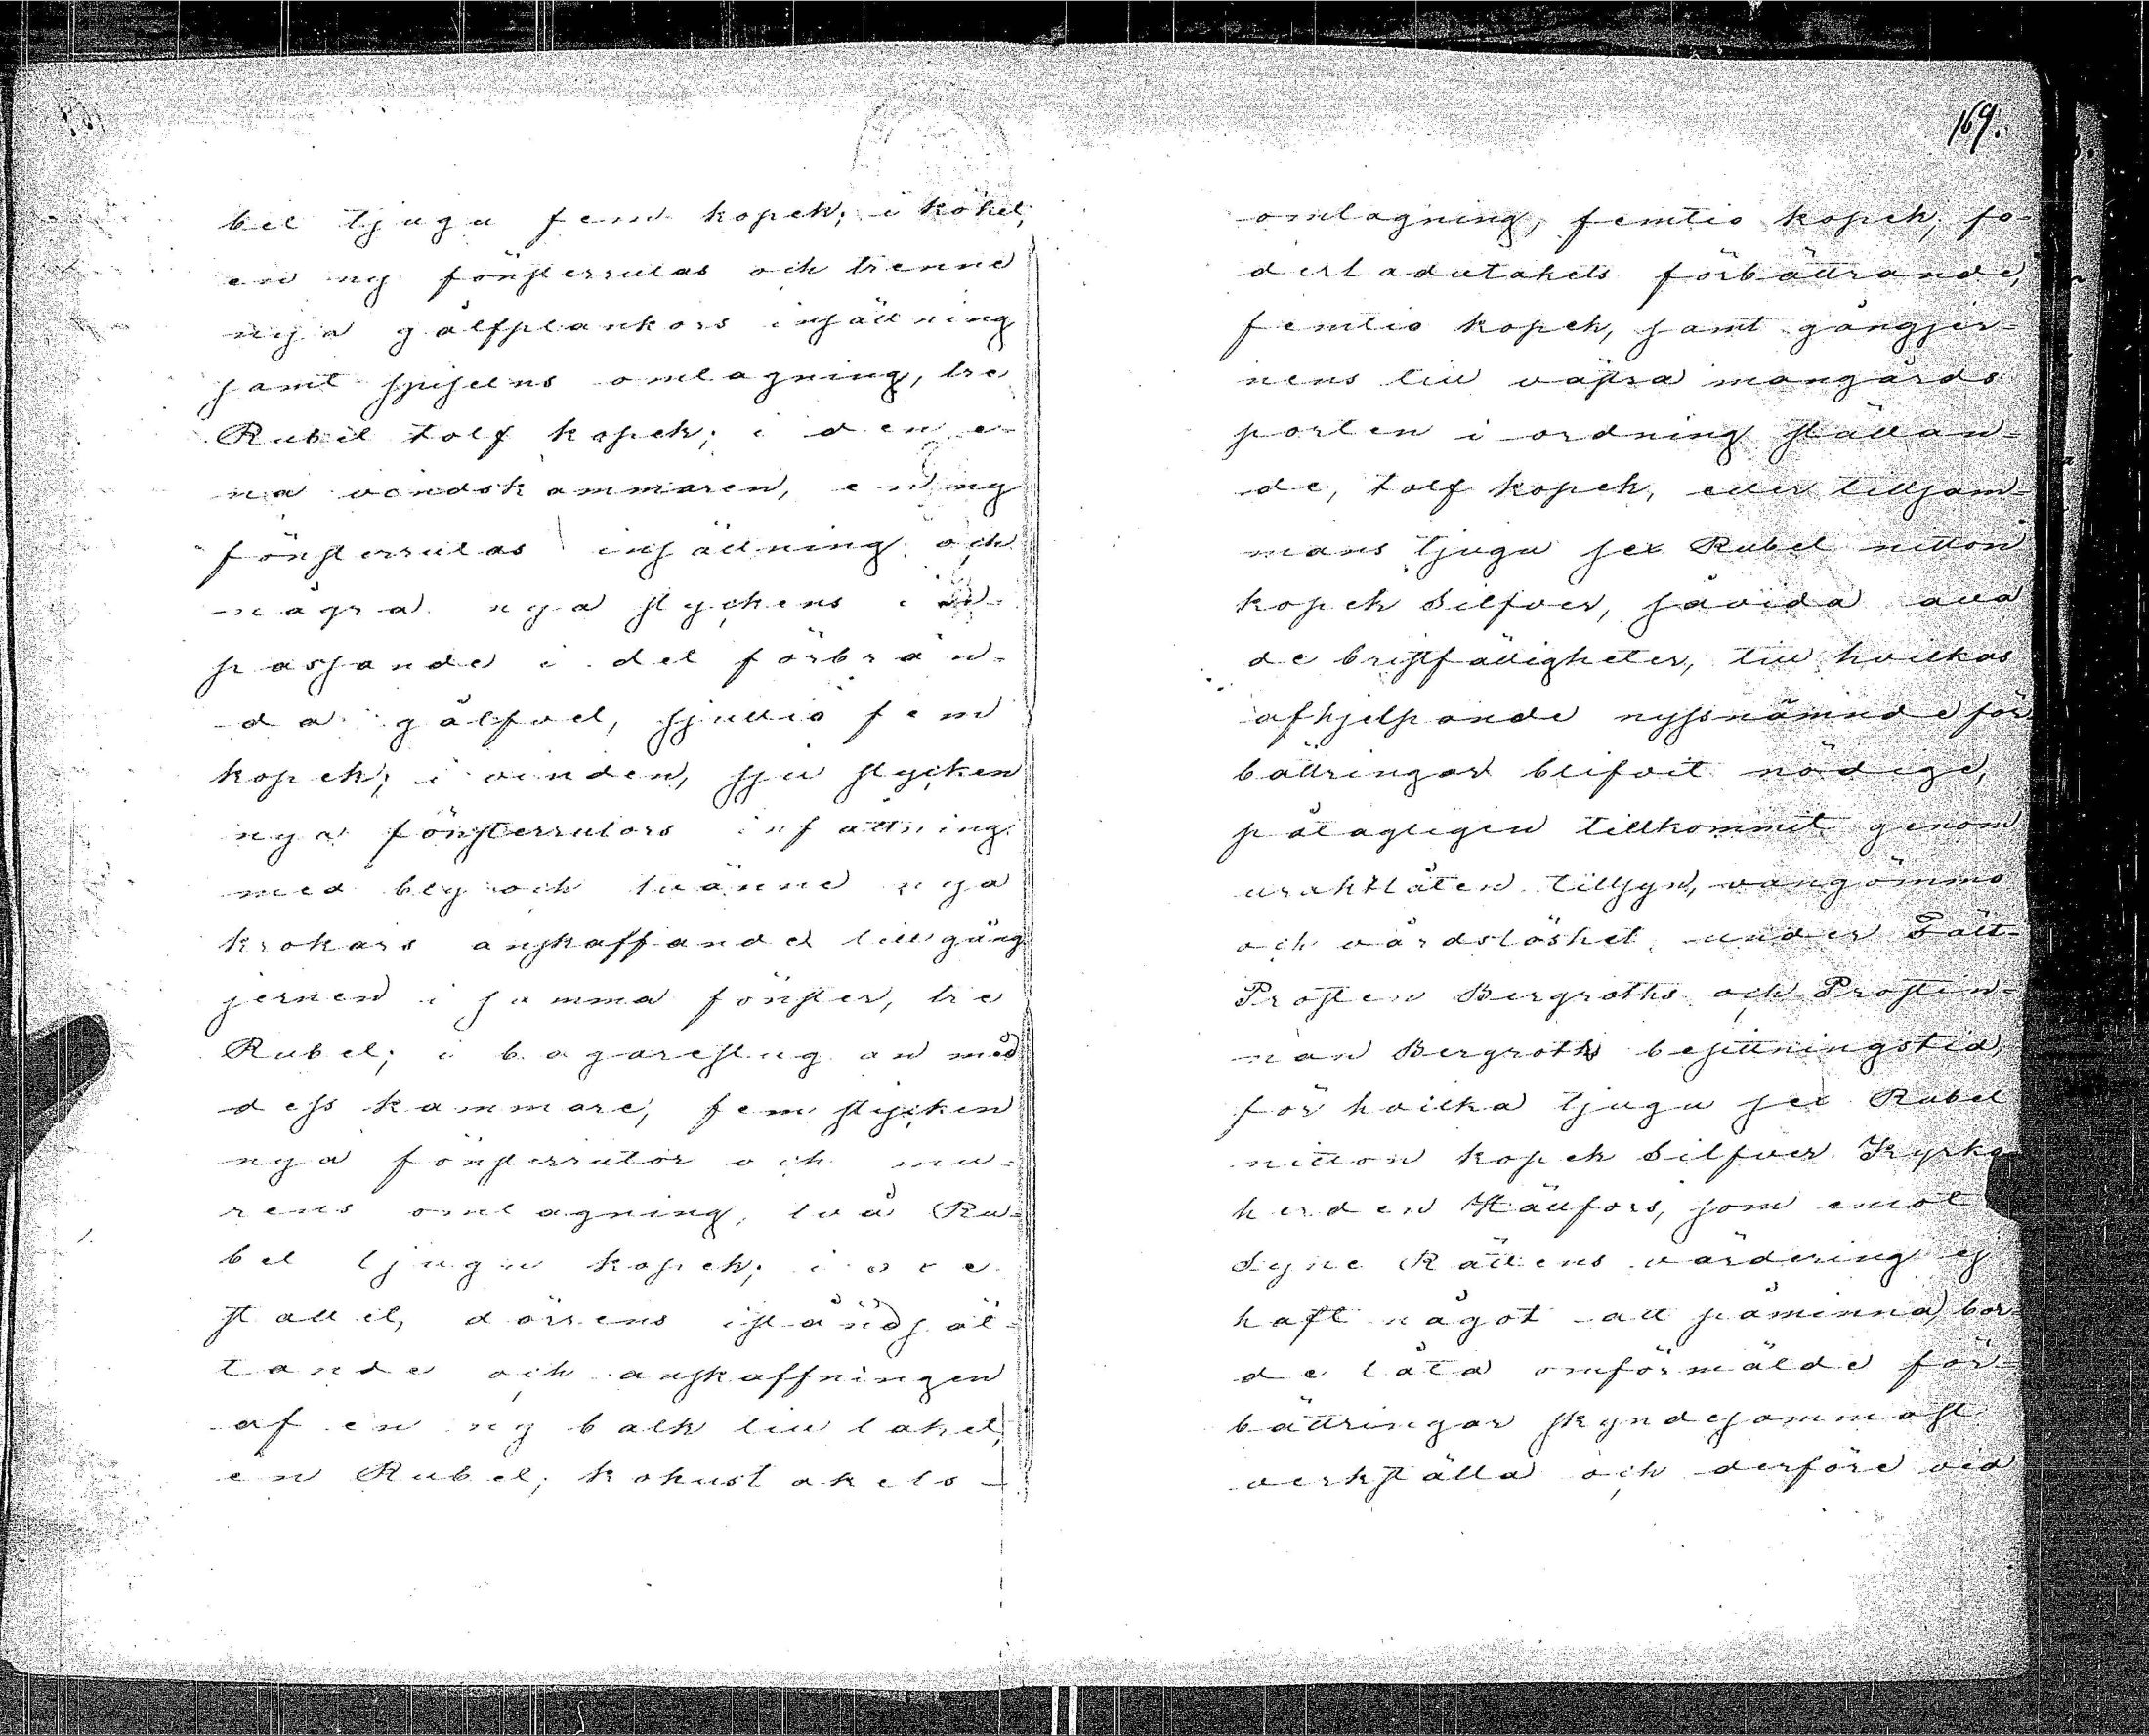 bel tjugu fem kopek; i köket,
en ny fönsterrutas och trenne
nya gålfplankors insättning
samt spiselns omlagning, tre
Rubel tolf kopek; i den e-
na vindskammaren, en ny
fönsterrutas insättning och
några nya styckens in-
passande i det förbrän-
da gålfvet, sjuttio fem
kopek; i vinden, sju stycken
nya fönsterrutors infattning
med bly och tvänne nya
krokars anskaffande till gång
jernen i samma fönster, tre
Rubel; i bagarestugan med
dess kammare, fem stycken
nya fönsterrutor och mu-
rens omlagning, två Ru-
bel tjugu kopek; i oxe
stallet, dörrens iståndsät-
tande och anskaffningen
af en ny balk till taket,
en Rubel; kokustakets
169.
omlagning, femtio kopek, fo
derladutakets förbättrande,
femtio kopek, samt gångjer-
nens till västra mangårds
porten i ordning ställan-
de, tolf kopek, eller tillsam-
mans tjugu sex Rubel nitton
kopek Silfver, såvida alla
de bristfälligheter, till hvilkas
afhjelpande nyssnämnde för
bättringar blifvit nödige,
påtagligen tillkommit genom
uraktlåten tillsyn, vangömmo
och vårdslöshet under Fält-
Prosten Bergroths och Prostin-
nan Bergroths besittningstid,
för hvilka tjugu sex Rubel
nitton kopek Silfver Kyrko
herden Hällfors, som emot
Syne Rättens värdering ej
haft något att påminna, bor-
de låta omförmälde för-
bättringar skyndesammast
verkställa och derföre vid